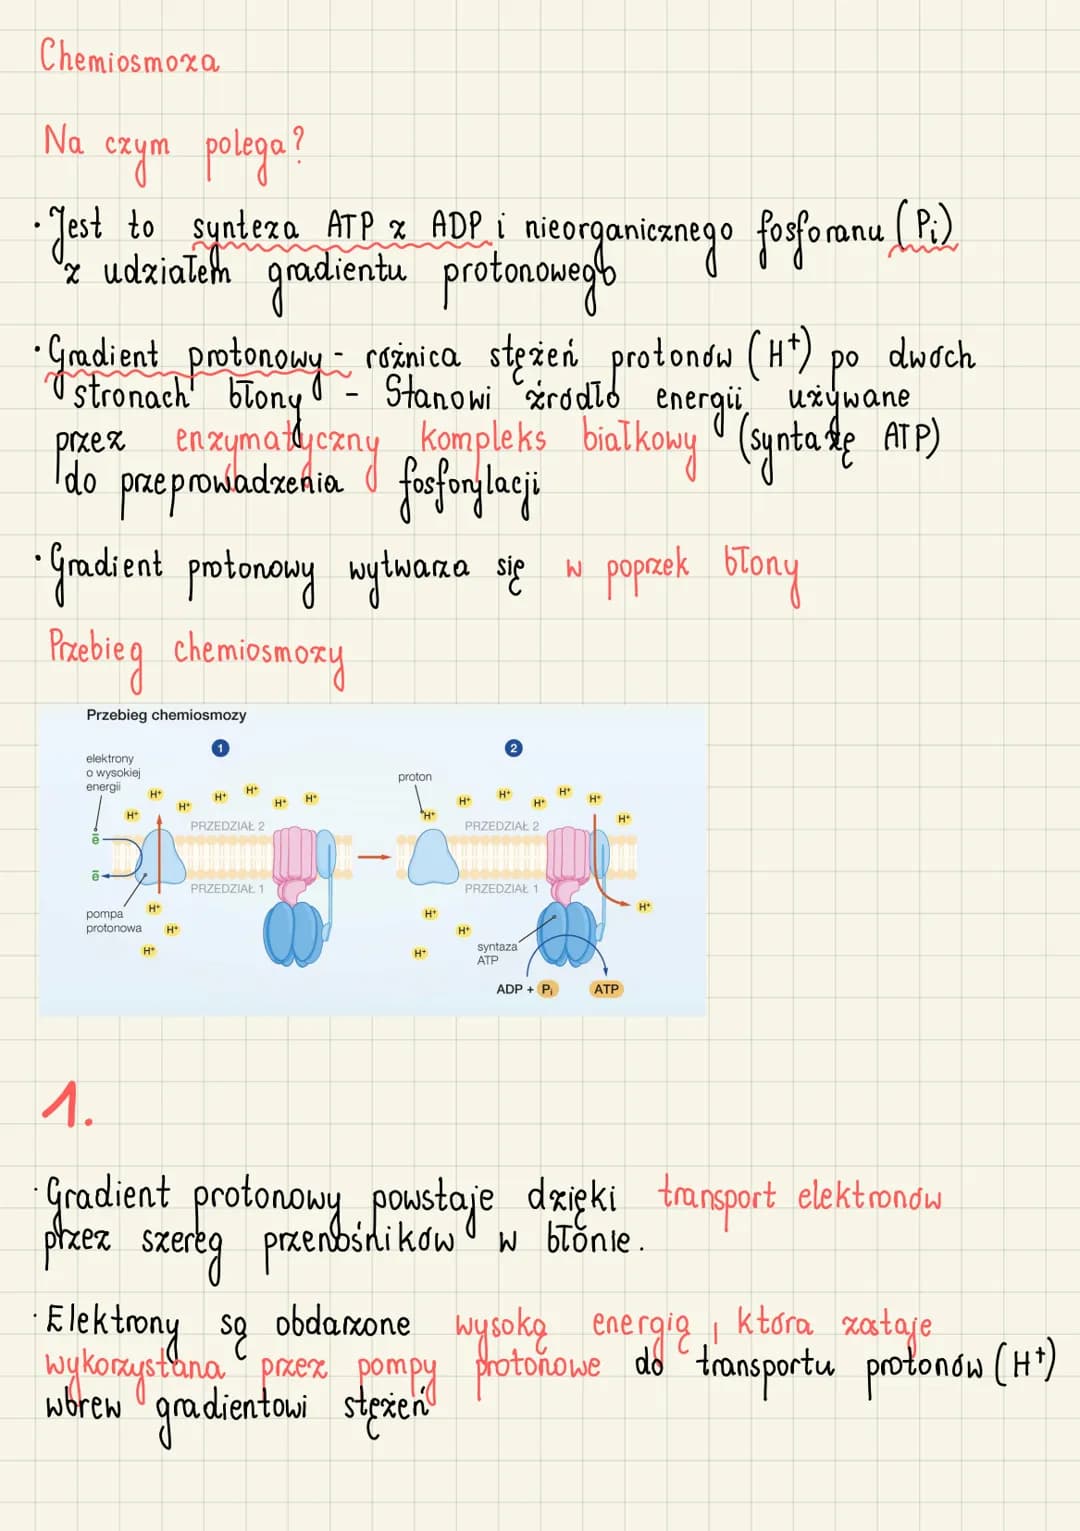 Chemiosmoza
Na czym polega?
· Jest to synteza ATP z ADP i nieorganicznego fosforanu (Pi)
z udziałem gradientu protonowego
· Gradient protonowy - różnica stężeń protonów (H⁺) po dwóch
stronach błony - Stanowi źródło energii używane
przez enzymatyczny kompleks białkowy (syntazę ATP)
do przeprowadzenia fosforylacji
· Gradient protonowy wytwarza się w poprzek błony
Przebieg chemiosmozy
Przebieg chemiosmozy
1
2
elektrony
o wysokiej
energii
proton
H⁺ H⁺ H⁺ H⁺ H⁺ H⁺ H⁺
H⁺ H⁺ H⁺ H⁺ H⁺ H⁺ H⁺
PRZEDZIAŁ 2
PRZEDZIAŁ 2
ē
ē
PRZEDZIAŁ 1
PRZEDZIAŁ 1
pompa
protonowa
H⁺
H⁺
H⁺
H⁺
H⁺
H⁺
H⁺
syntaza
ATP
ADP + Pi
ATP
1.
· Gradient protonowy powstaje dzięki transport elektronów
przez szereg przenośników w błonie.
· Elektrony są obdarzone wysoką energią, która zostaje
wykorzystana przez pompy protonowe do transportu protonów (H⁺)
wbrew gradientowi stężeń